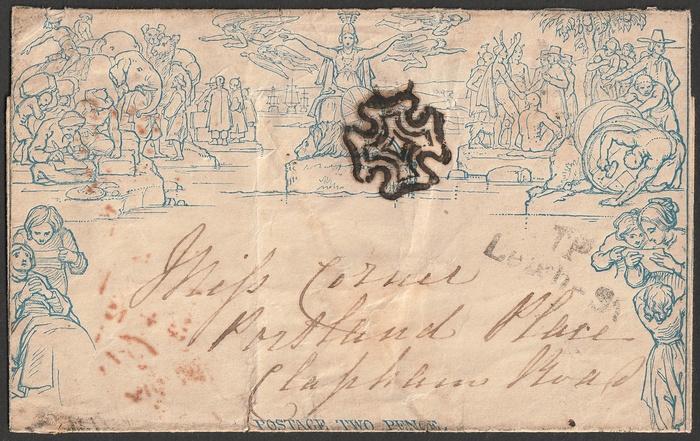 TP
Miss Corner
Portland Place
Clapham Road
POSTAGE TWO PENCE.